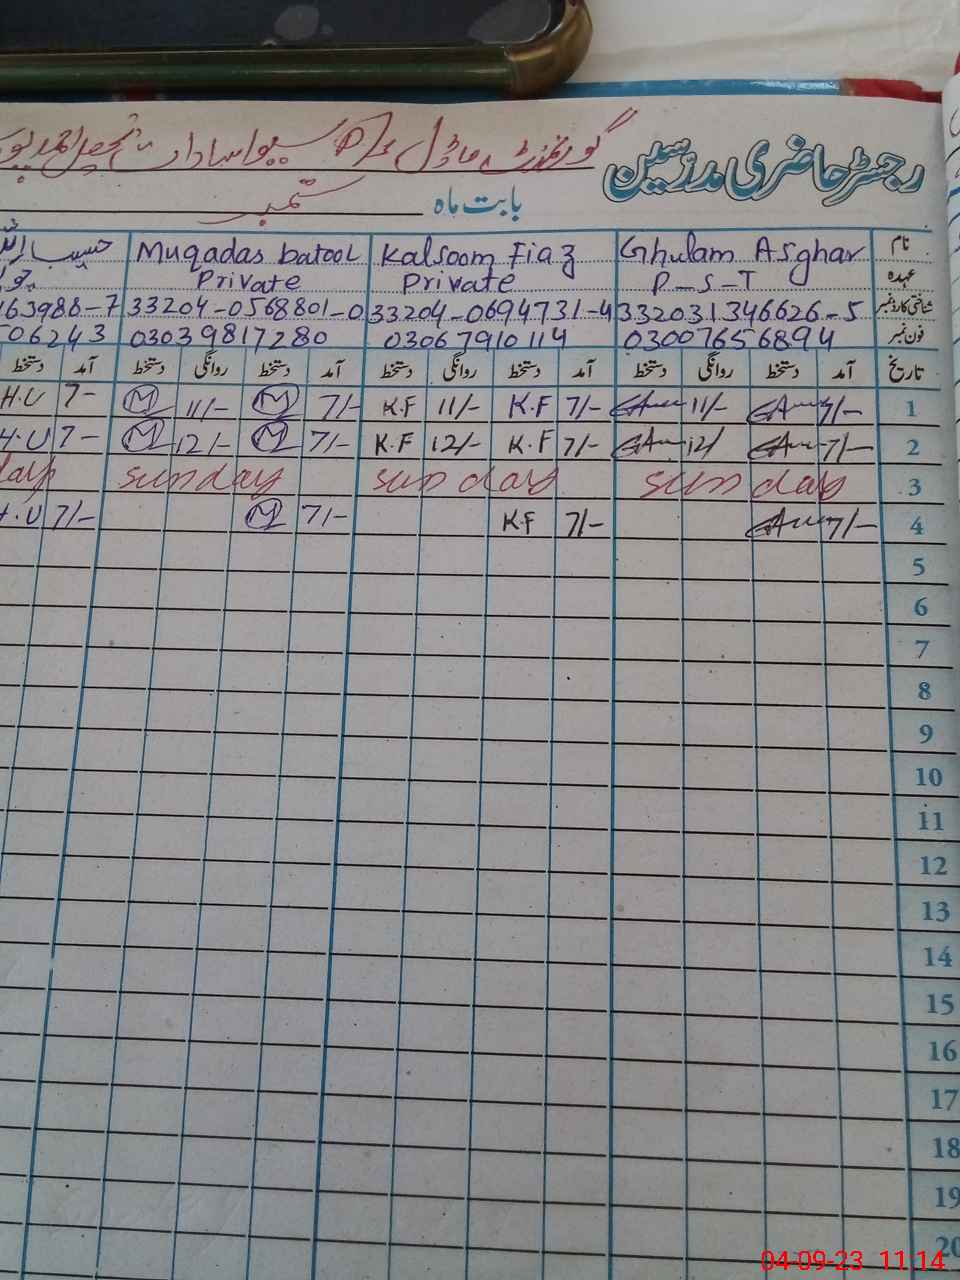 رجسٹر حاضری مدرسین گورنمنٹ ماڈل سیواسادار
بابت ماہ ستمبر
نام Ghulam Asghar Kalsoom Fiaz Muqadas batool حسیب اللہ
عہدہ P-S-T Private Private
شناختی کارڈ نمبر 332031346626-5 33204-0694731-4 33204-0568801-0 63988-7
فون نمبر 03007656894 03067910114 03039817280 06243
تاریخ آمد دستخط روانگی دستخط آمد دستخط روانگی دستخط آمد دستخط روانگی دستخط آمد دستخط
1 7/- 11/- 7/- K.F 11/- K.F 7/- M 11/- M 7- H.U
2 7/- 12/ 7/- K.F 12/- K.F 7/- M 12/- M 7- H.U
3 sunday sunday sunday day
4 7/- 7/- K.F 7/- M 7/- H.U
5
6
7
8
9
10
11
12
13
14
15
16
17
18
19
20
04-09-23 11:14